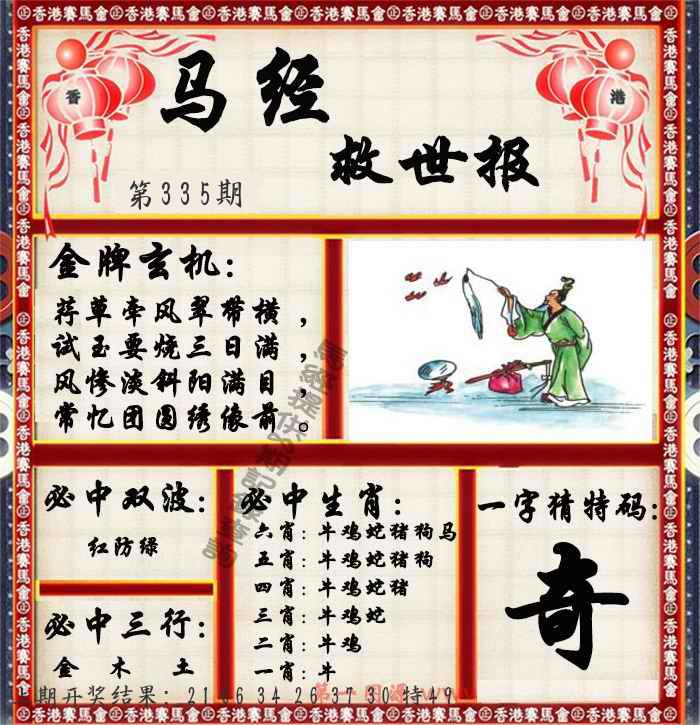 香港賽馬會
香
港
马经
救世报
第335期
金牌玄机：
荇草牵风翠带横，
试玉要烧三日满，
风惨淡斜阳满目，
常忆团圆绣像前。
必中双波：
红防绿
必中三行：
金 木 土
必中生肖：
六肖：牛鸡蛇猪狗马
五肖：牛鸡蛇猪狗
四肖：牛鸡蛇猪
三肖：牛鸡蛇
二肖：牛鸡
一肖：牛
一字猜特码：
奇
期开奖结果：21 06 34 26 37 30 特49